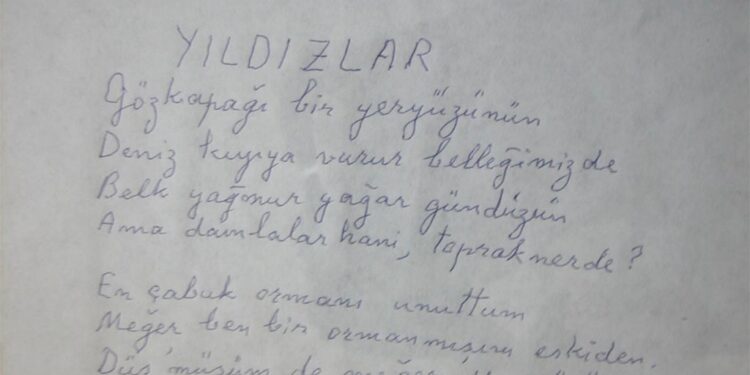 YILDIZLAR
Gözkapağı bir yeryüzünün
Deniz kıyıya vurur belleğimizde
Belk yağmur yağar gündüzün
Ama damlalar hani, toprak nerde?
En çabuk ormanı unuttum
Meğer ben bir ormanmışım eskiden.
Düş'müşüm de meğer